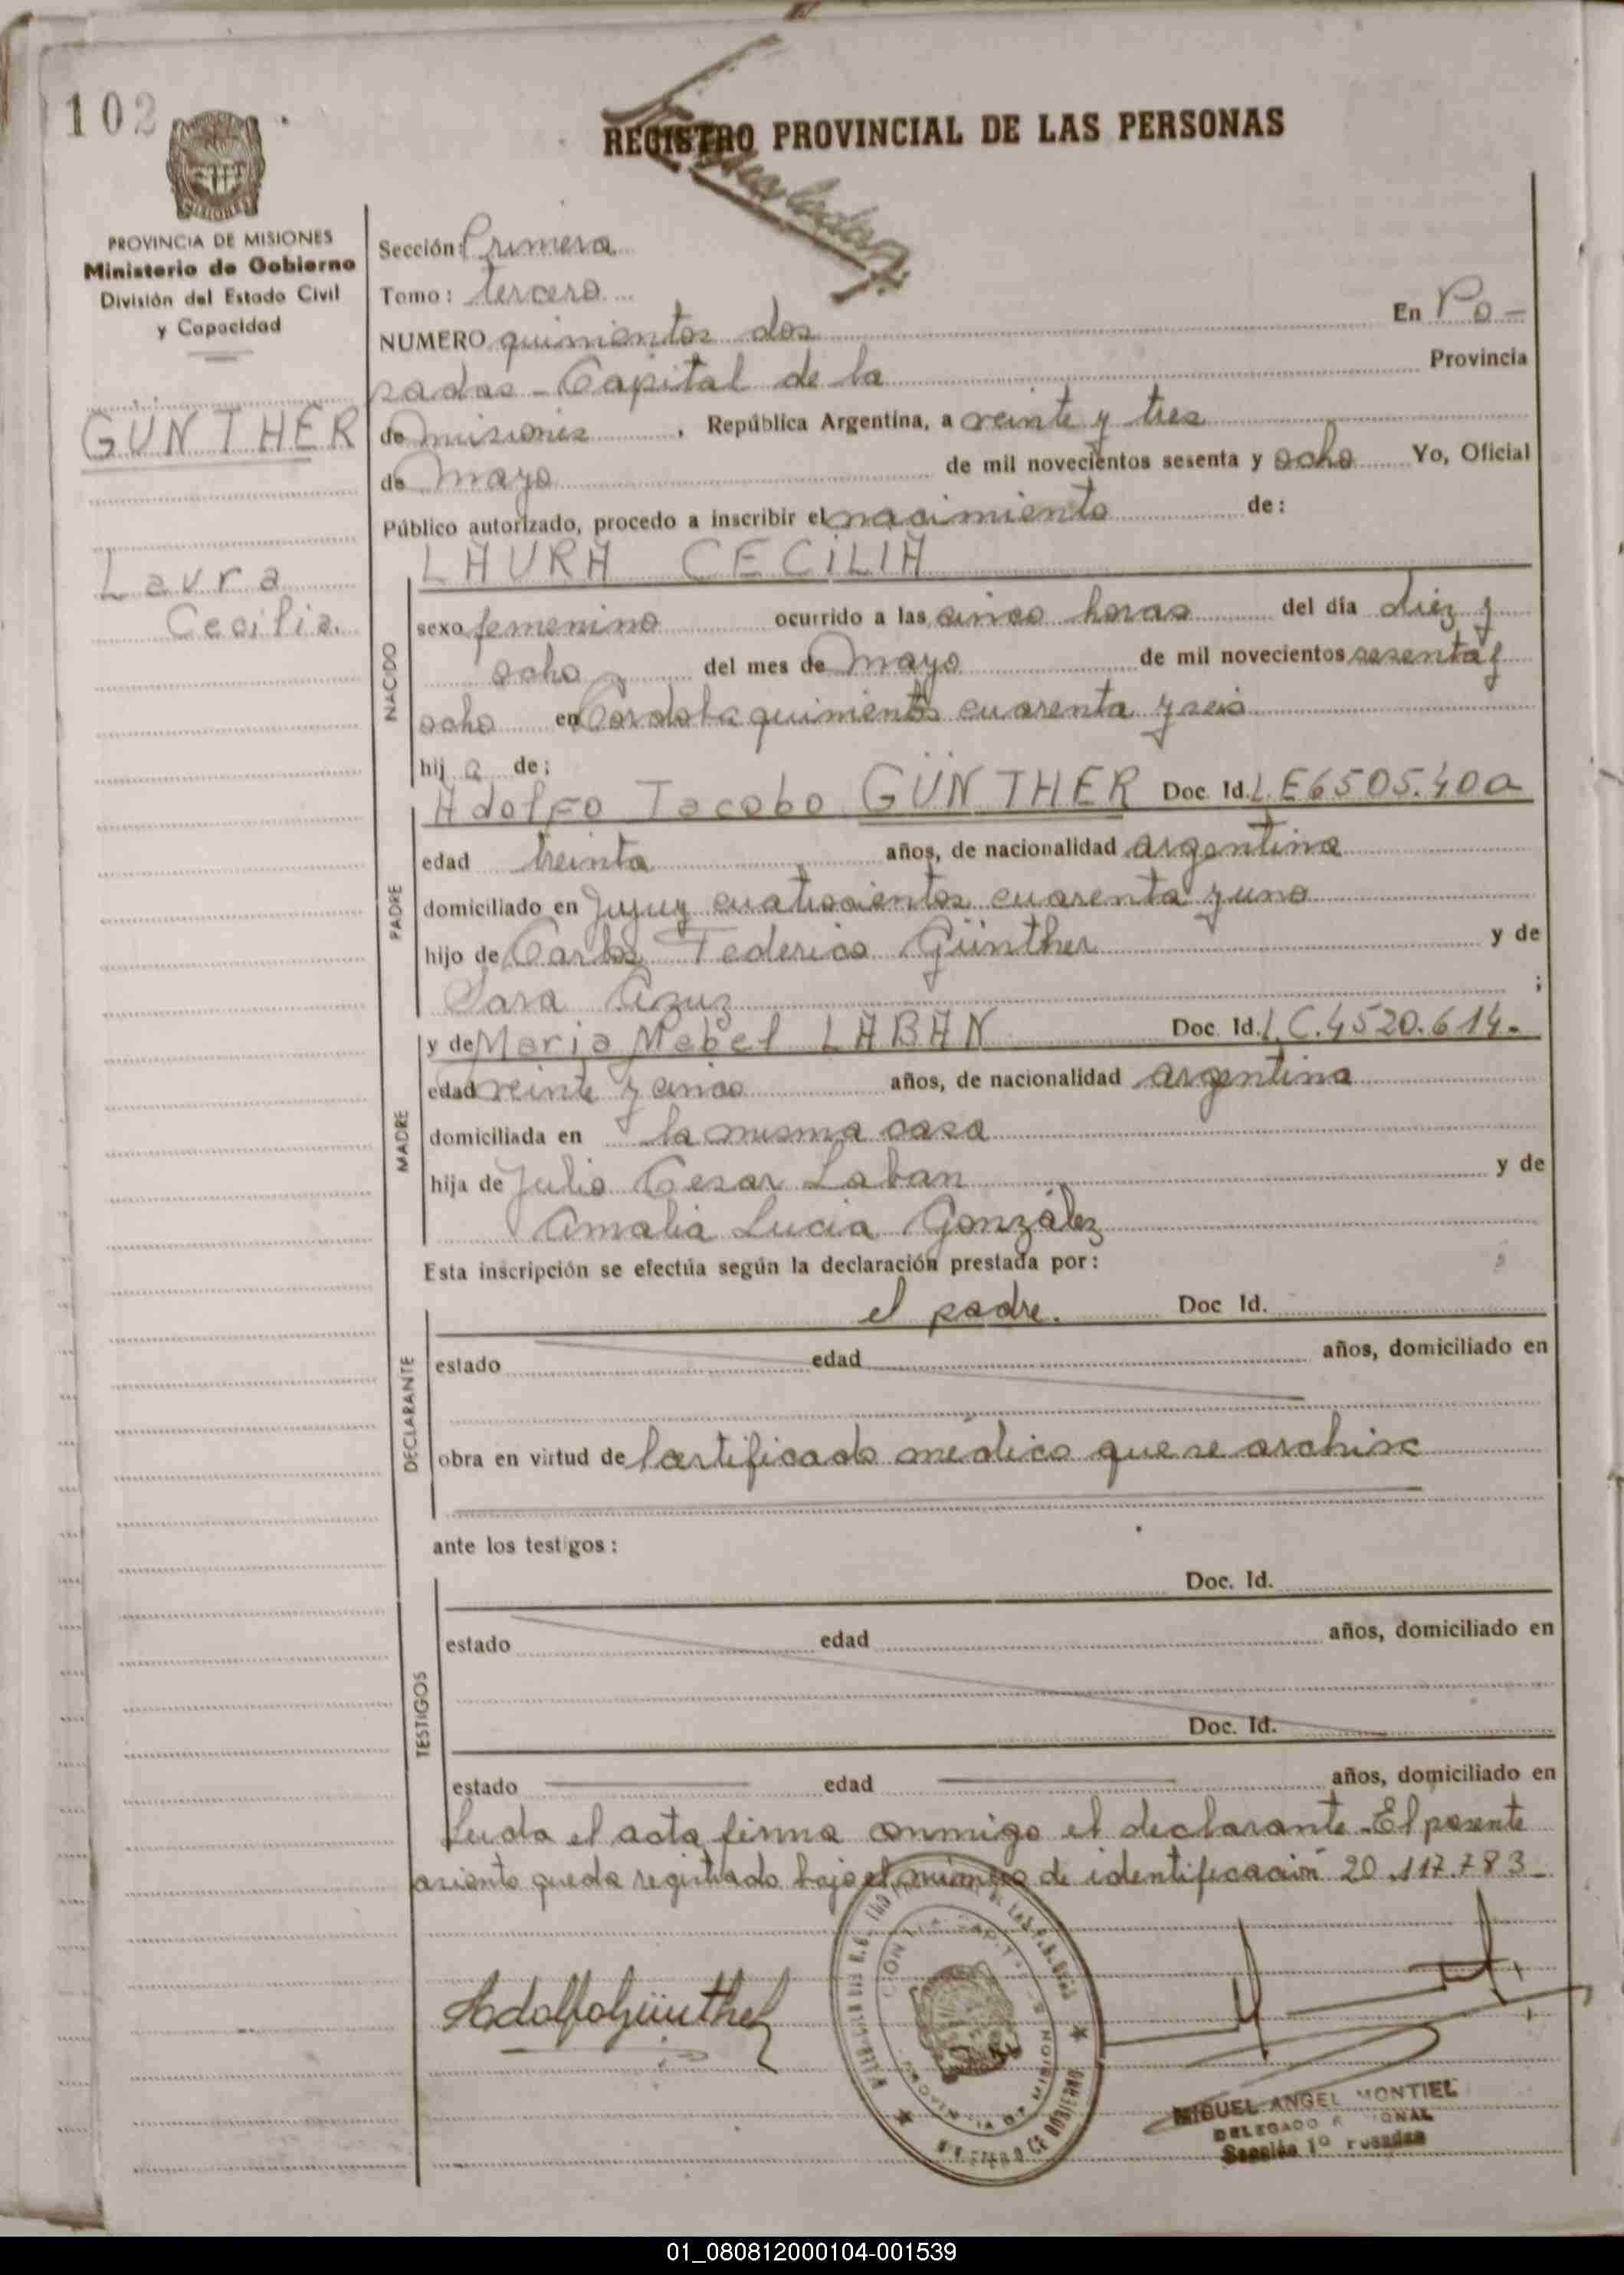 102
REGISTRO PROVINCIAL DE LAS PERSONAS
MISIONES
PROVINCIA DE MISIONES
Ministerio de Gobierno
División del Estado Civil
y Capacidad
GÜNTHER
Laura
Cecilia.
Sección: Primera
Tomo: tercero
NUMERO quinientos dos En Po-
sadas - Capital de la Provincia
de misiones, República Argentina, a veinte y tres
de mayo de mil novecientos sesenta y ocho Yo, Oficial
Público autorizado, procedo a inscribir el nacimiento de:
LAURA CECILIA
NACIDO
sexo femenino ocurrido a las cinco horas del día diez y
ocho del mes de mayo de mil novecientos sesenta y
ocho en Cordoba quinientos cuarenta y seis
hij a de:
PADRE
Adolfo Jacobo GÜNTHER Doc. Id. L.E 6505.400
edad treinta años, de nacionalidad argentina
domiciliado en Jujuy cuatrocientos cuarenta y uno
hijo de Carlos Federico Günther y de
Sara Azuz ;
MADRE
y de Maria Mabel LABAN Doc. Id. L.C. 4520.614.
edad veinte y cinco años, de nacionalidad argentina
domiciliada en la misma casa
hija de Julio Cesar Laban y de
Amalia Lucia González
Esta inscripción se efectúa según la declaración prestada por:
DECLARANTE
el padre. Doc. Id.
estado edad años, domiciliado en
obra en virtud de certificado médico que se archiva
ante los testigos:
TESTIGOS
Doc. Id.
estado edad años, domiciliado en
Doc. Id.
estado edad años, domiciliado en
Leida el acta firma conmigo el declarante - El presente
asiento queda registrado bajo el número de identificación 20.117.783_
Adolfo Günther
MIGUEL ANGEL MONTIEL
DELEGADO
Sección 1º Posadas
01_080812000104-001539